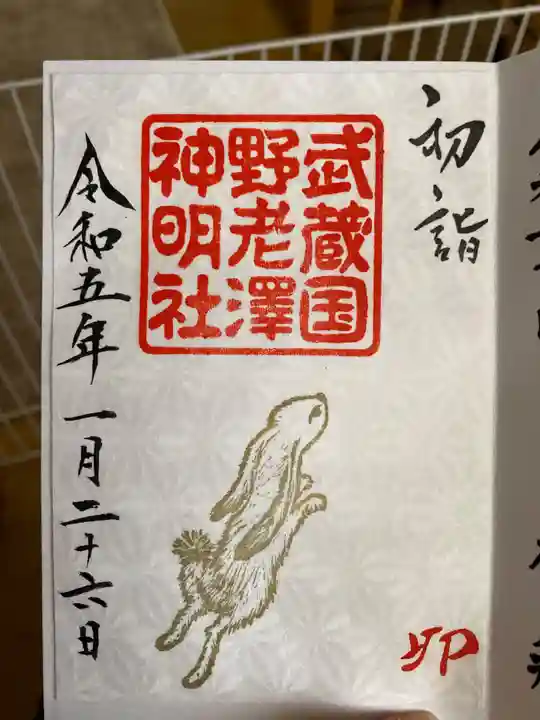 初詣
武蔵国
野老澤
神明社
卯
令和五年 一月二十六日